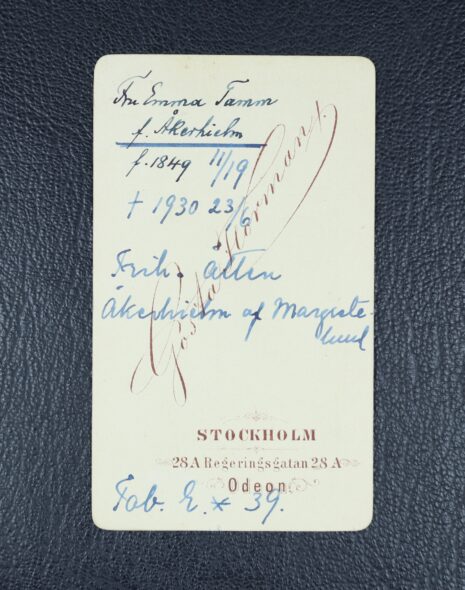 Fru Emma Tamm
f. Åkerhielm
f. 1849 11/19
† 1930 23/6
Frih. ätten
Åkerhielm af Margrete-
lund
Gösta Florman
STOCKHOLM
28A Regeringsgatan 28A
Odeon
Tab. 2. * 39.